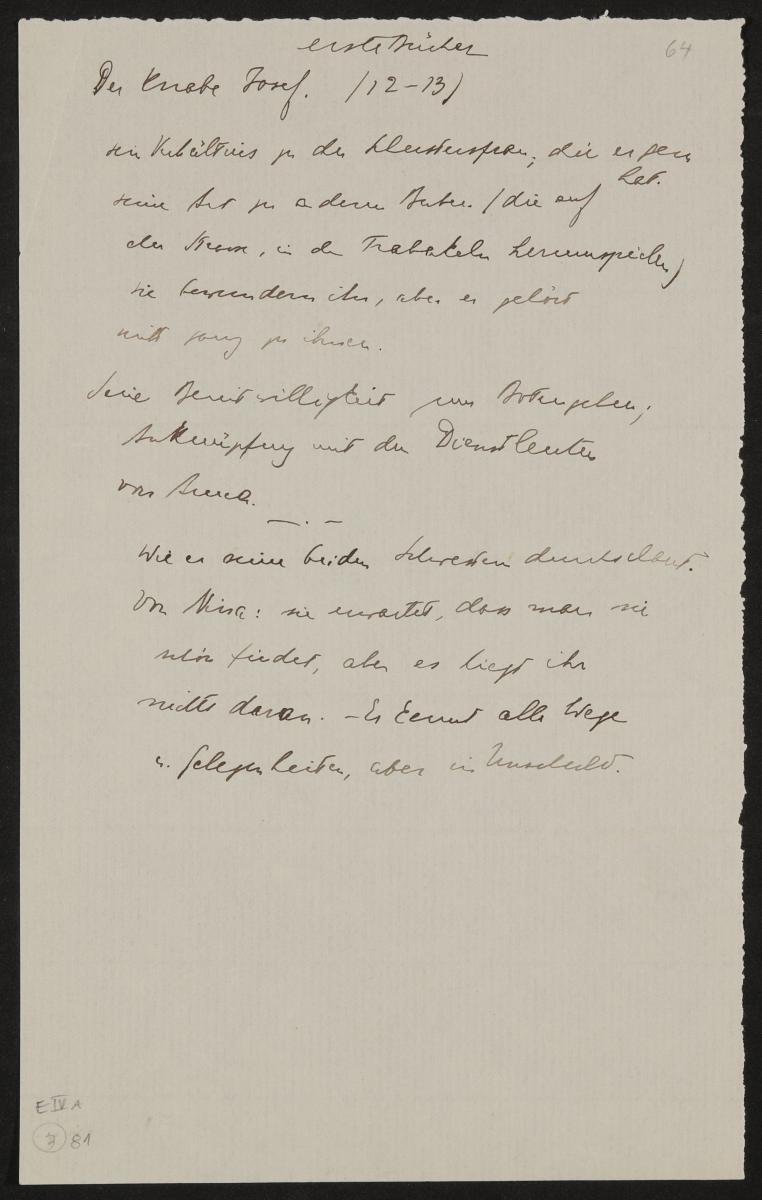 erste Bücher
64
Der Knabe Josef. (12–13)
sein Verhältnis zu der Schustersfrau, die er gern
hat.
seine Art zu andern Buben. (die auf
der Riva, in den Trabakeln herumspielen)
sie bewundern ihn, aber er gehört
nicht ganz zu ihnen.
Seine Bereitwilligkeit zum Botengehen;
Anknüpfung mit den Dienstleuten
von Anna.
— . —
Wie er seine beiden Schwestern durchschaut.
Von Nina: sie erwartet, dass man sie
schön findet, aber es liegt ihr
nichts daran. – Er kennt alle Wege
u. Gelegenheiten, aber in Unschuld.
E IV A
3 81